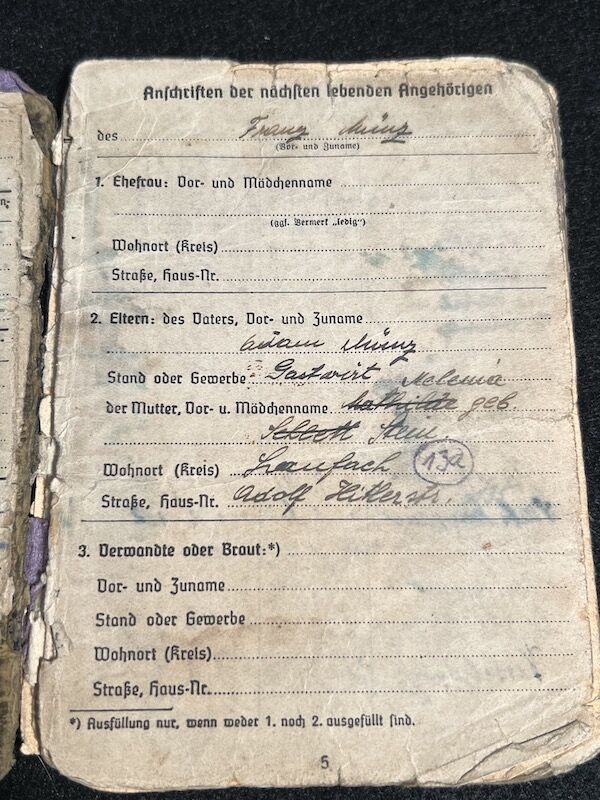 Anschriften der nächsten lebenden Angehörigen
des Franz Münz
(Vor- und Zuname)
1. Ehefrau: Vor- und Mädchenname
(ggf. Vermerk „ledig“)
Wohnort (Kreis)
Straße, Haus-Nr.
2. Eltern: des Vaters, Vor- und Zuname
Adam Münz
Stand oder Gewerbe Gastwirt
der Mutter, Vor- u. Mädchenname Mathilde geb.
Wohnort (Kreis) Laufach 13a
Straße, Haus-Nr. Adolf Hitlerstr.
3. Verwandte oder Braut:*)
Vor- und Zuname
Stand oder Gewerbe
Wohnort (Kreis)
Straße, Haus-Nr.
*) Ausfüllung nur, wenn weder 1. noch 2. ausgefüllt sind.
5